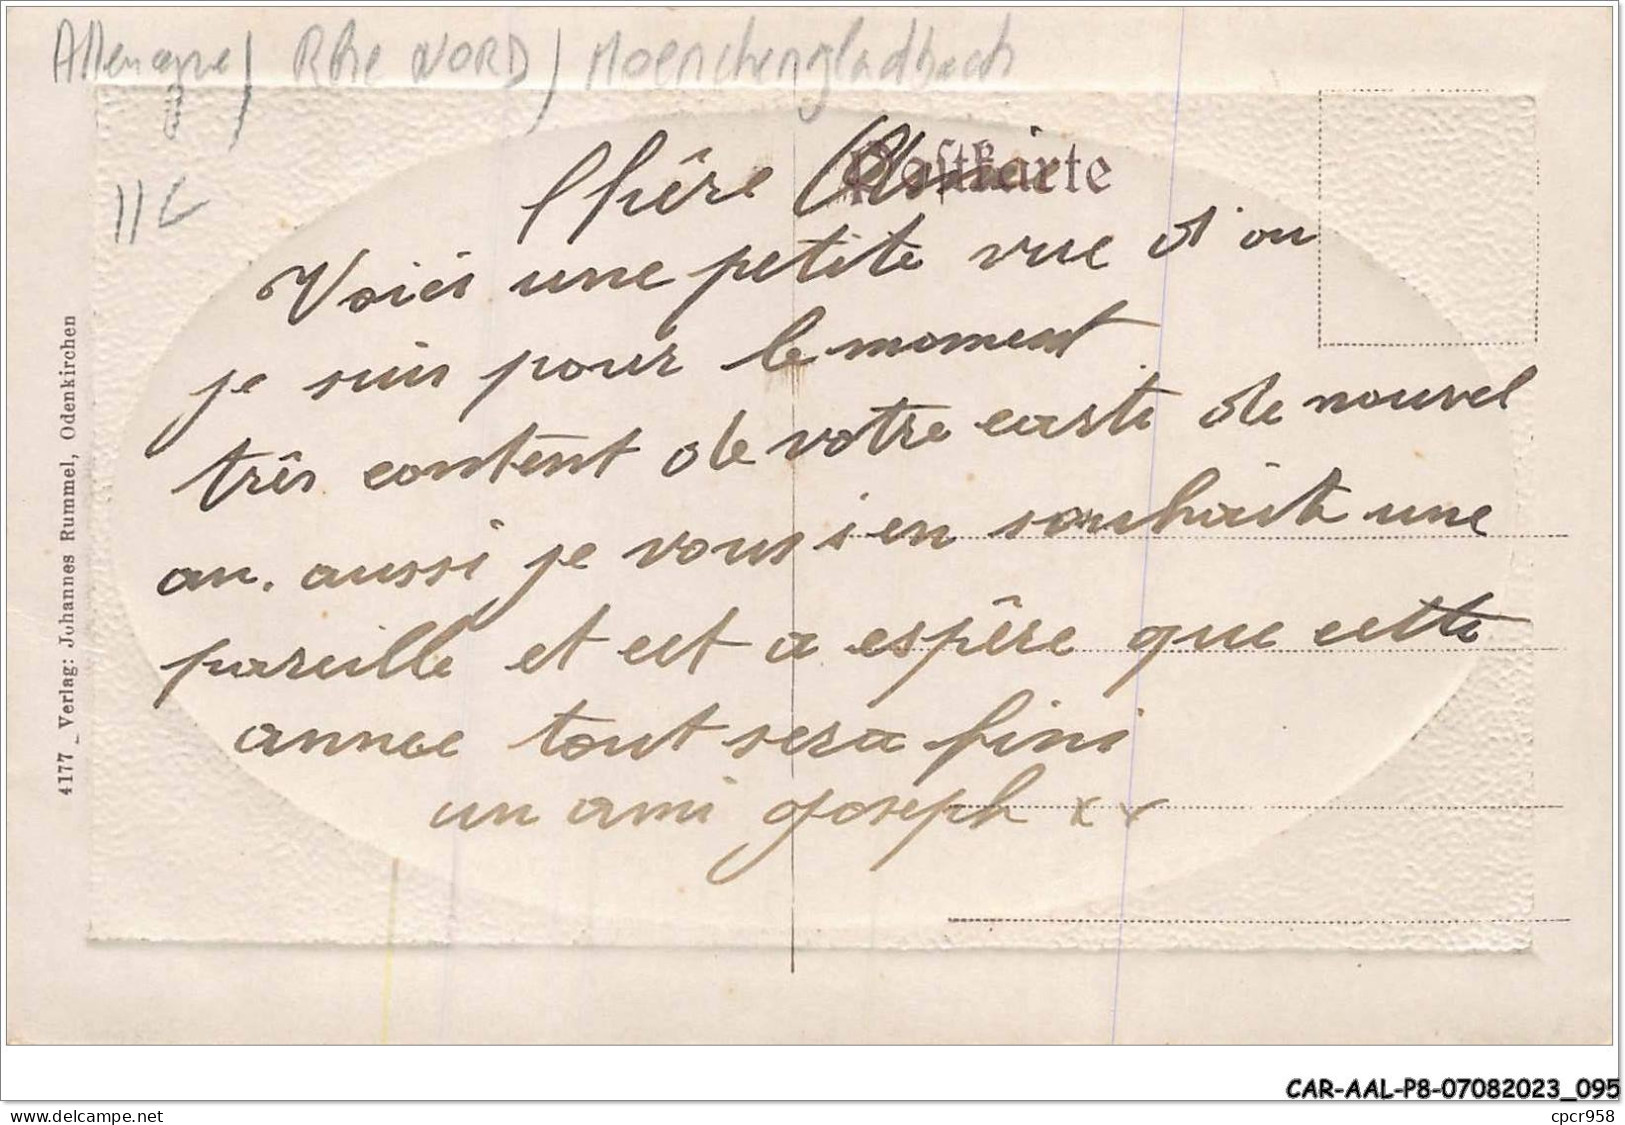 Allemagne / Rhe NORD / Moenchengladbach
11C
Postkarte
Chêre
Voici une petite vue d'ou
je suis pour le moment
três content de votre carte de nouvel
an. aussi je vous en souhaite une
pareille et cet a espêre que cette
annee tout sera fini
un ami Joseph xx
4177 _ Verlag: Johannes Rummel, Odenkirchen
CAR-AAL-P8-07082023_095
© delcampe.net
cpcr958